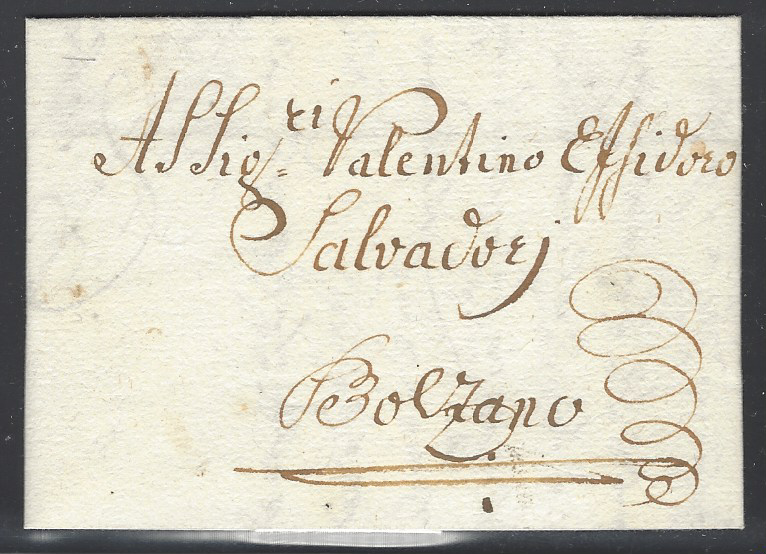 A SSig:ri Valentino Essidoro
Salvadorj
Bolzano